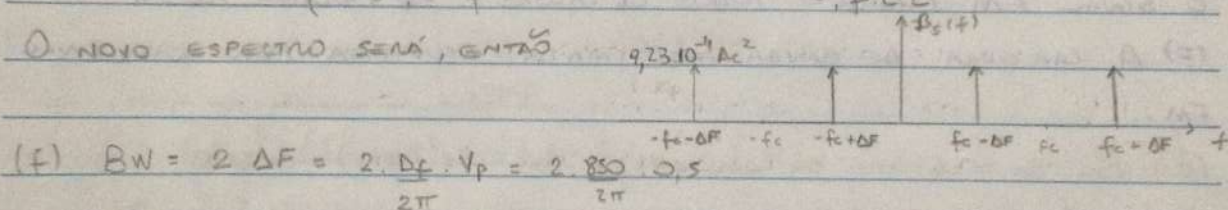 O NOVO ESPECTRO SERÁ, ENTÃO
9,23.10⁻⁴ Ac²
β_s(f)
-fc-ΔF -fc -fc+ΔF fc-ΔF fc fc+ΔF f
(f) BW = 2 ΔF = 2. Df/2π . Vp = 2. 850/2π . 0,5